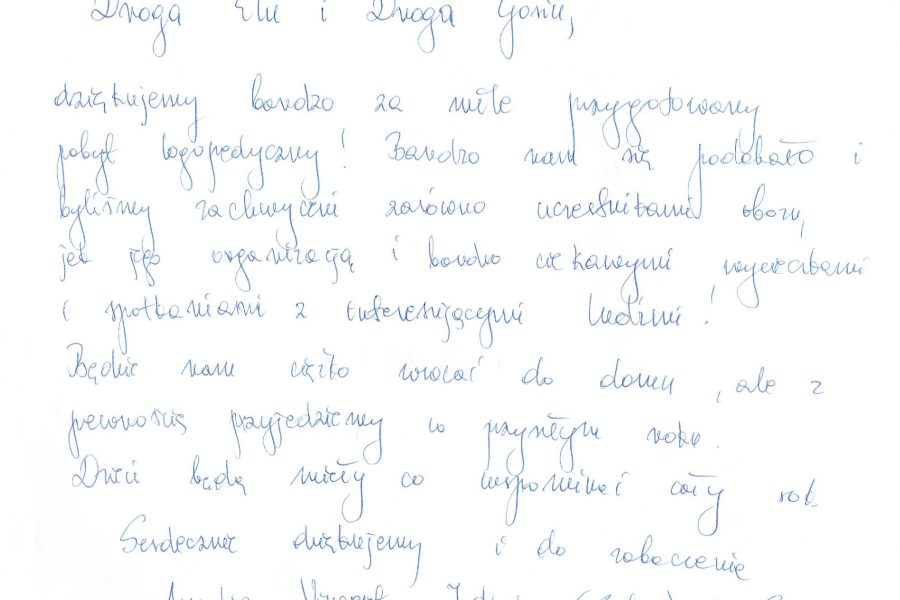 Droga Elu i Droga Gosiu,
dziękujemy bardzo za miłe przygotowany
pobyt logopedyczny! Bardzo nam się podobało i
byliśmy zachwyceni zarówno uczestnikami obozu,
jak jego organizacją i bardzo ciekawymi wycieczkami
i spotkaniami z interesującymi ludźmi!
Będzie nam ciężko wracać do domu, ale z
pewnością przyjedziemy w przyszłym roku.
Dzieci będą miały co wspominać cały rok
Serdecznie dziękujemy i do zobaczenia